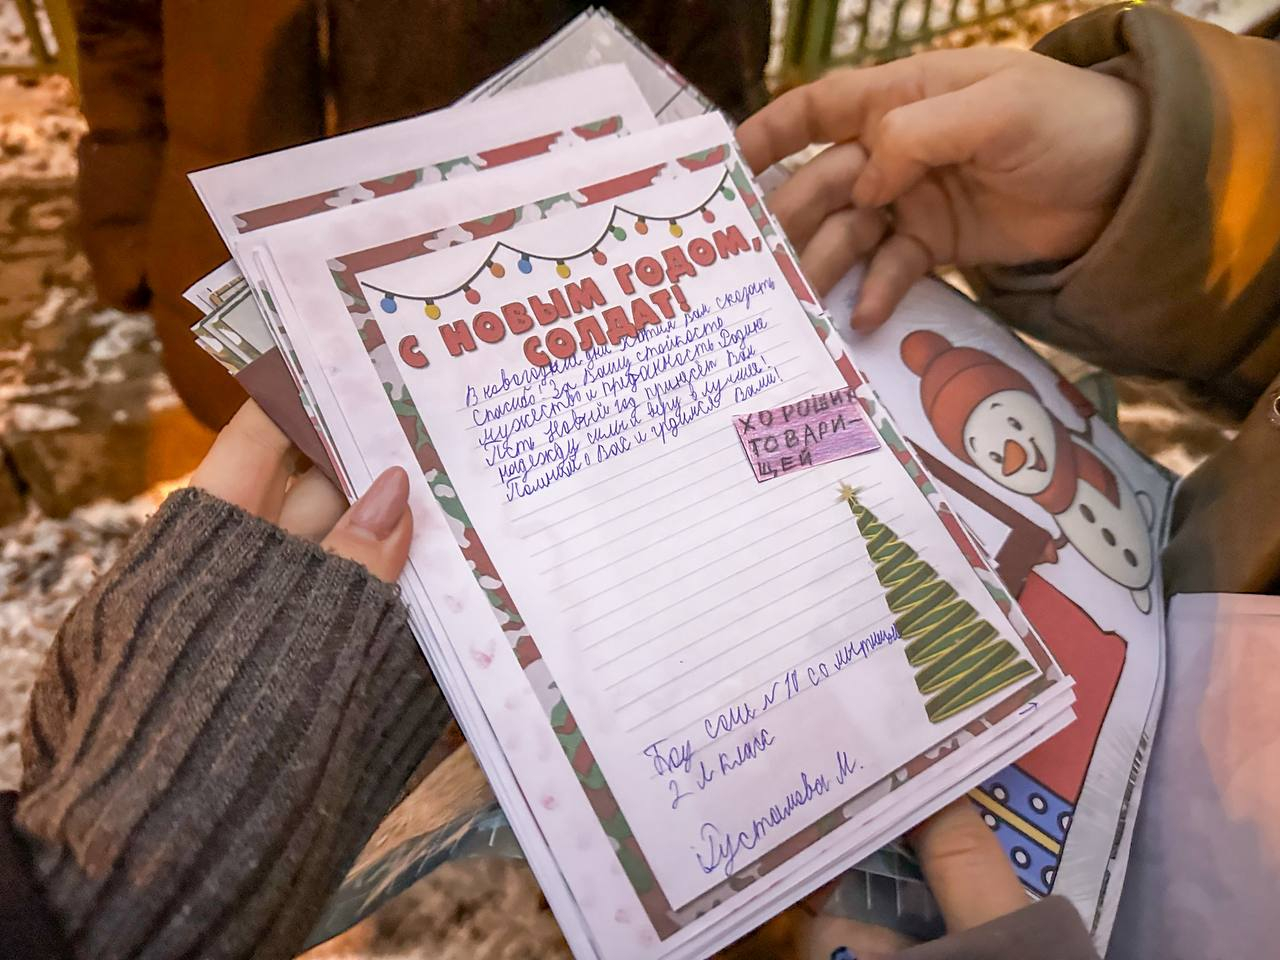 С НОВЫМ ГОДОМ,
СОЛДАТ!
В новогодние дни хотим вам сказать
спасибо! За Вашу стойкость
мужество и преданность Родине
Пусть Новый год принесёт Вам
надежду силы и веру в лучшее!
Помним о Вас и гордимся Вами!
ХОРОШИХ
ТОВАРИ-
ЩЕЙ
сош N 10
2 л класс
Рустамова М.